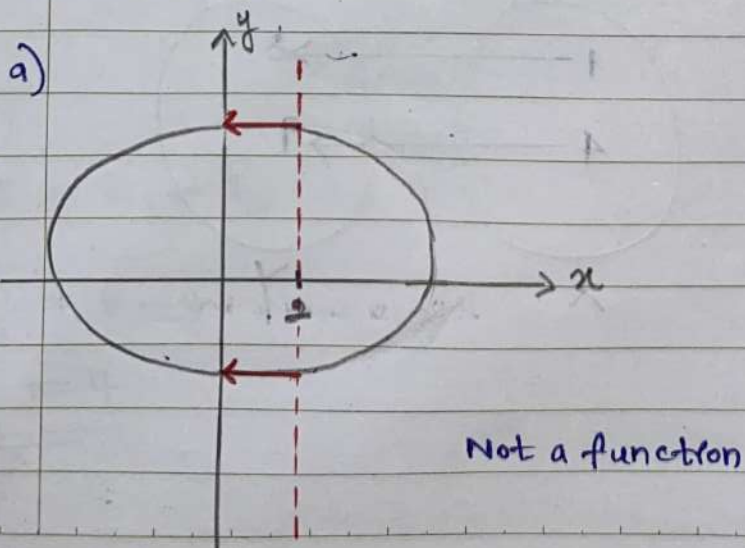 y
a)
x
2
Not a function